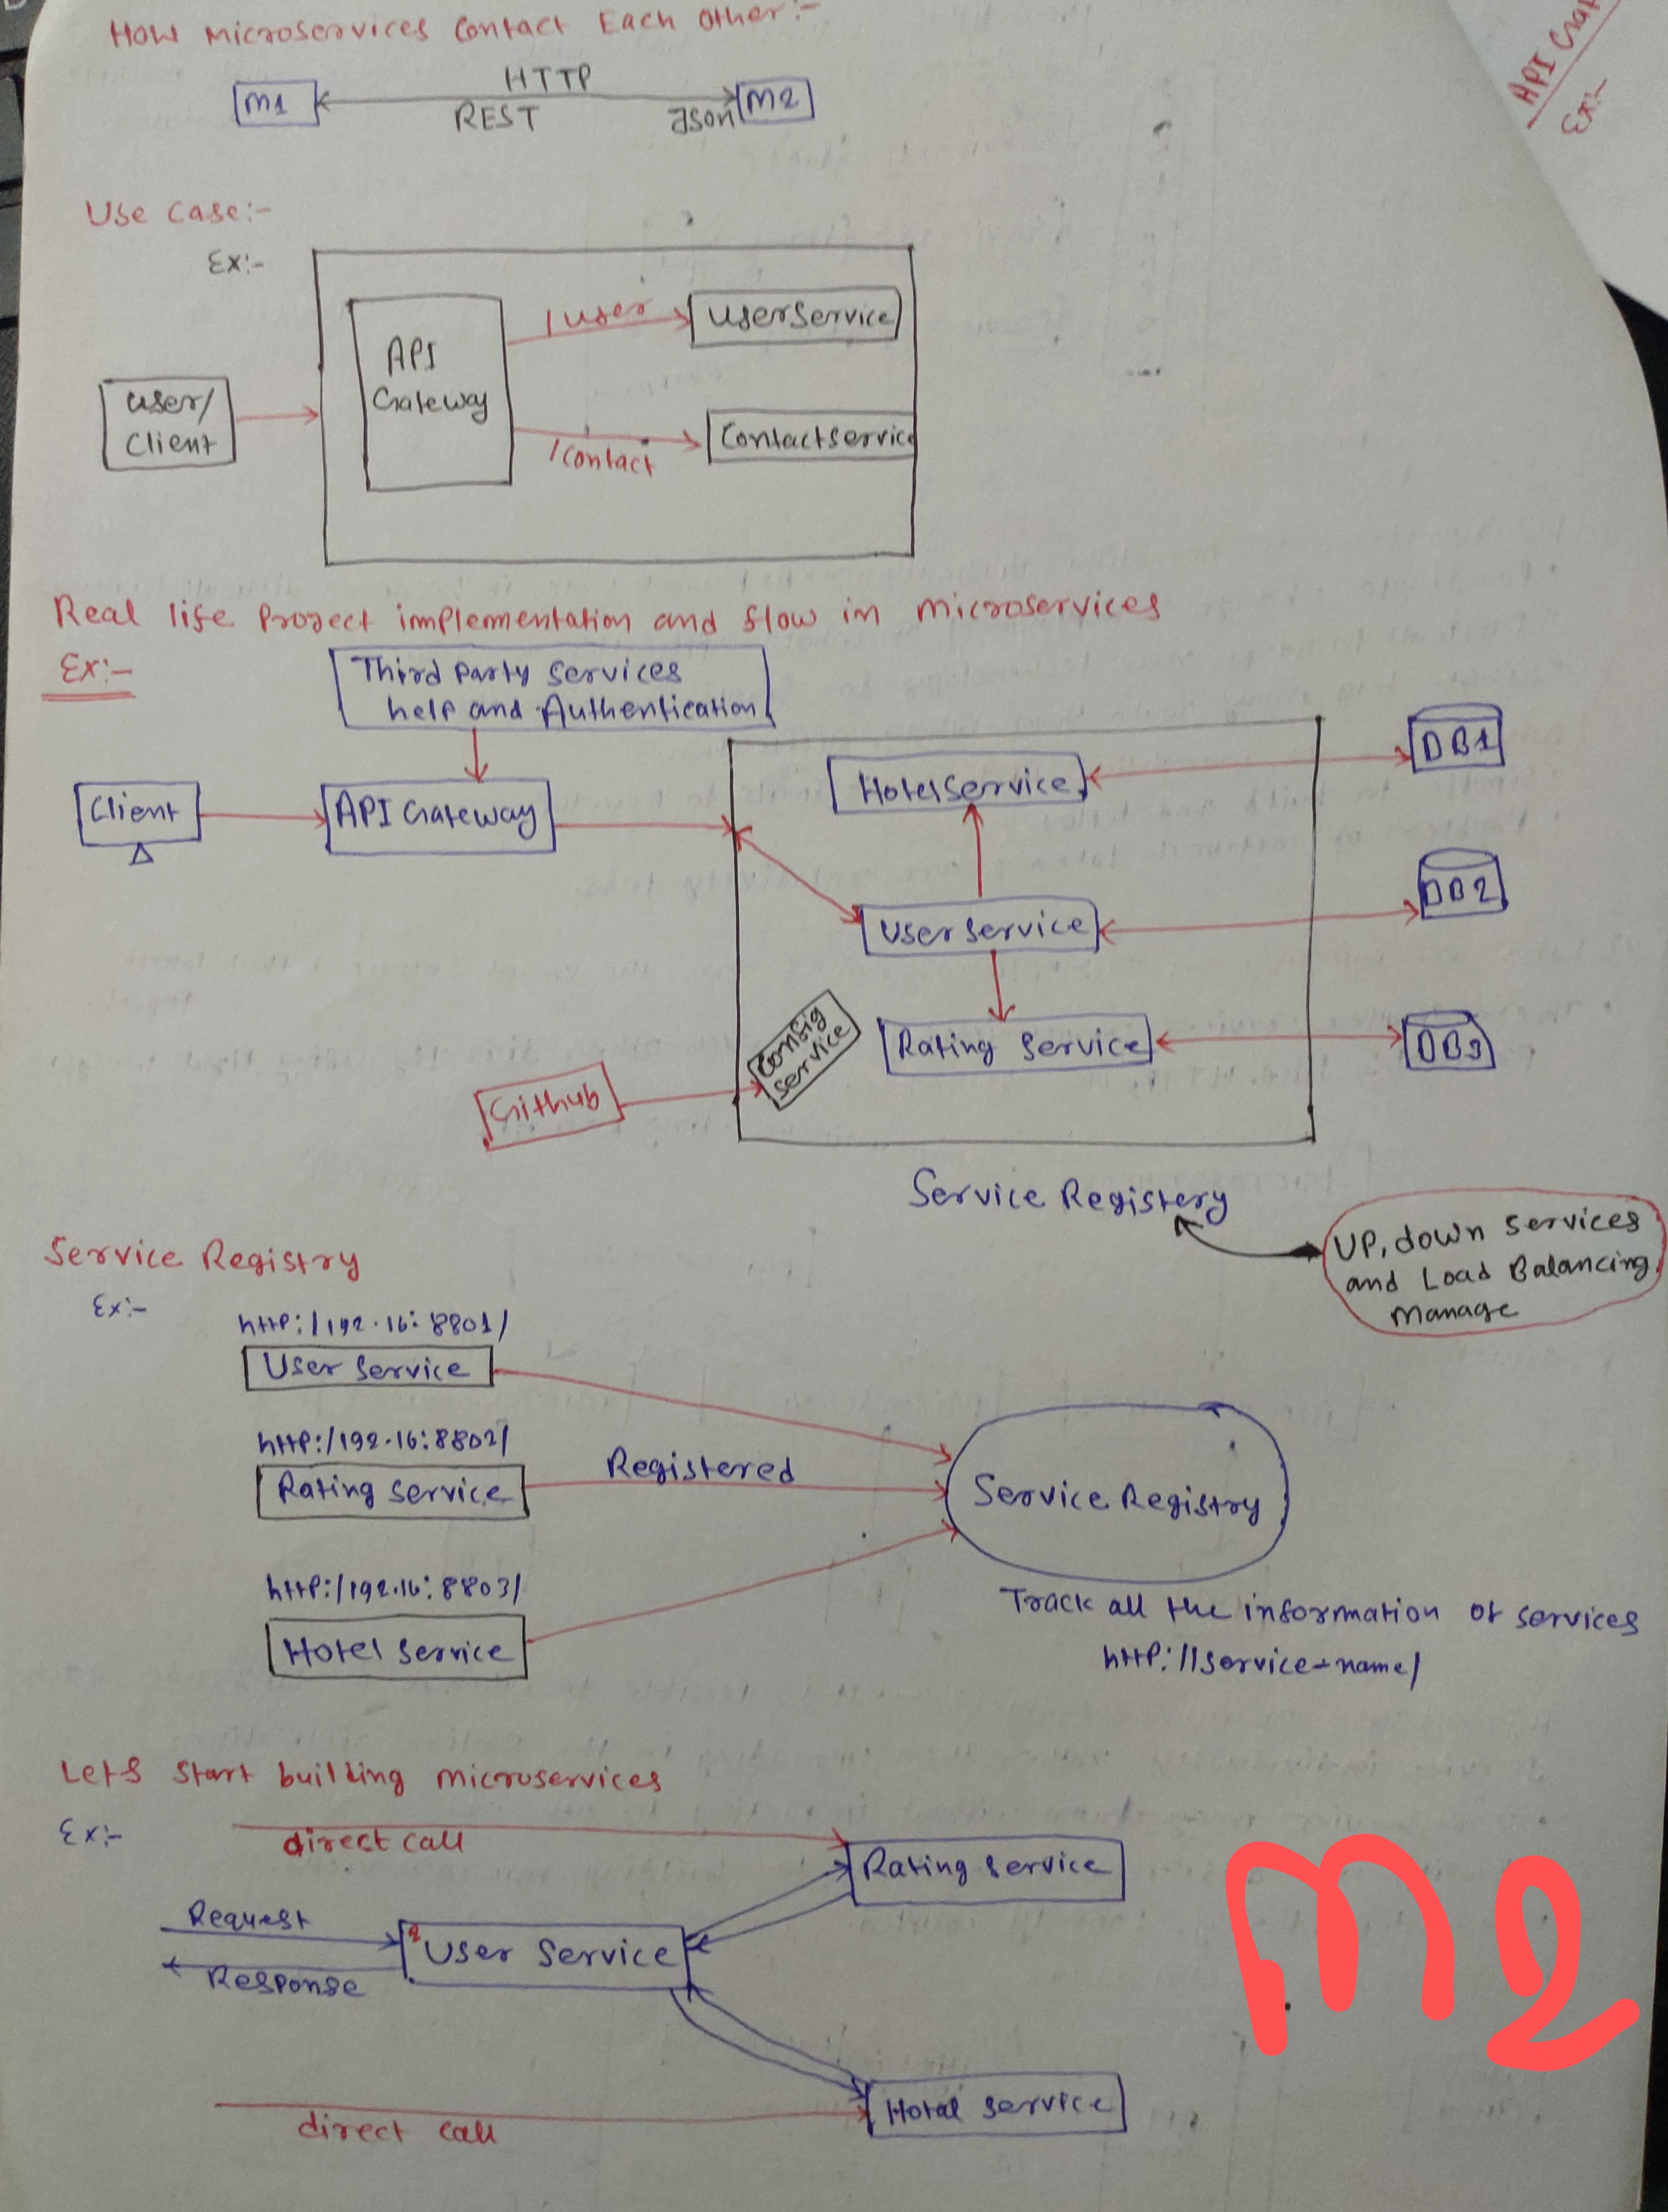 How Microservices Contact Each Other:-
M1
HTTP
REST
Json
M2
API
Ex:-
Use Case:-
Ex:-
User/
Client
API
Gateway
/user
UserService
/Contact
ContactService
Real life Project implementation and flow in Microservices
Ex:-
Third Party Services
help and Authentication
Client
API Gateway
HotelService
DB1
User Service
DB2
Config
Service
Rating Service
DB3
Github
Service Registery
UP, down services
and Load Balancing
Manage
Service Registry
Ex:-
http:/192.16:8801/
User Service
http:/192.16:8802/
Rating Service
Registered
http:/192.16:8803/
Hotel Service
Service Registry
Track all the information of services
http://service-name/
Lets start building microservices
Ex:-
direct call
Rating Service
Request
User Service
Response
M2
Hotal Service
direct call